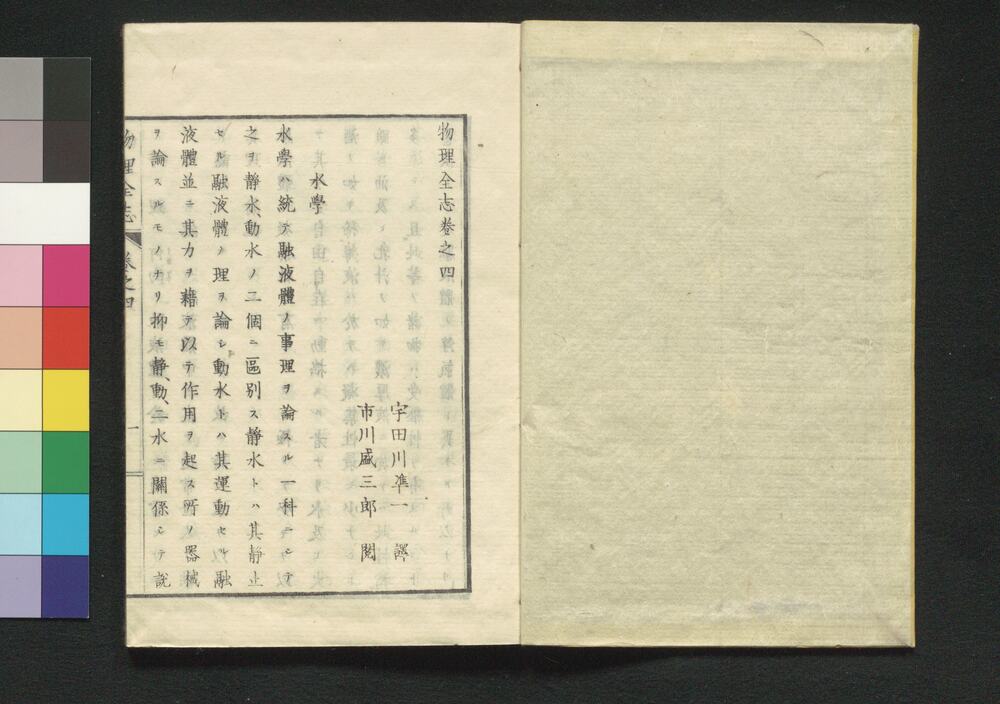 物理全志卷之四
宇田川準一　譯
市川盛三郎　閲
水學
水學ハ統テ融液體ノ事理ヲ論スル一科ニシテ
之ヲ靜水、動水ノ二個ニ區別ス靜水トハ其靜止
セル融液體ノ理ヲ論シ動水トハ其運動セル融
液體並ニ其力ヲ藉テ以テ作用ヲ起ス所ノ器械
ヲ論スルモノナリ抑モ靜、動、二水ニ關係シテ說
物理全志　卷之四　一